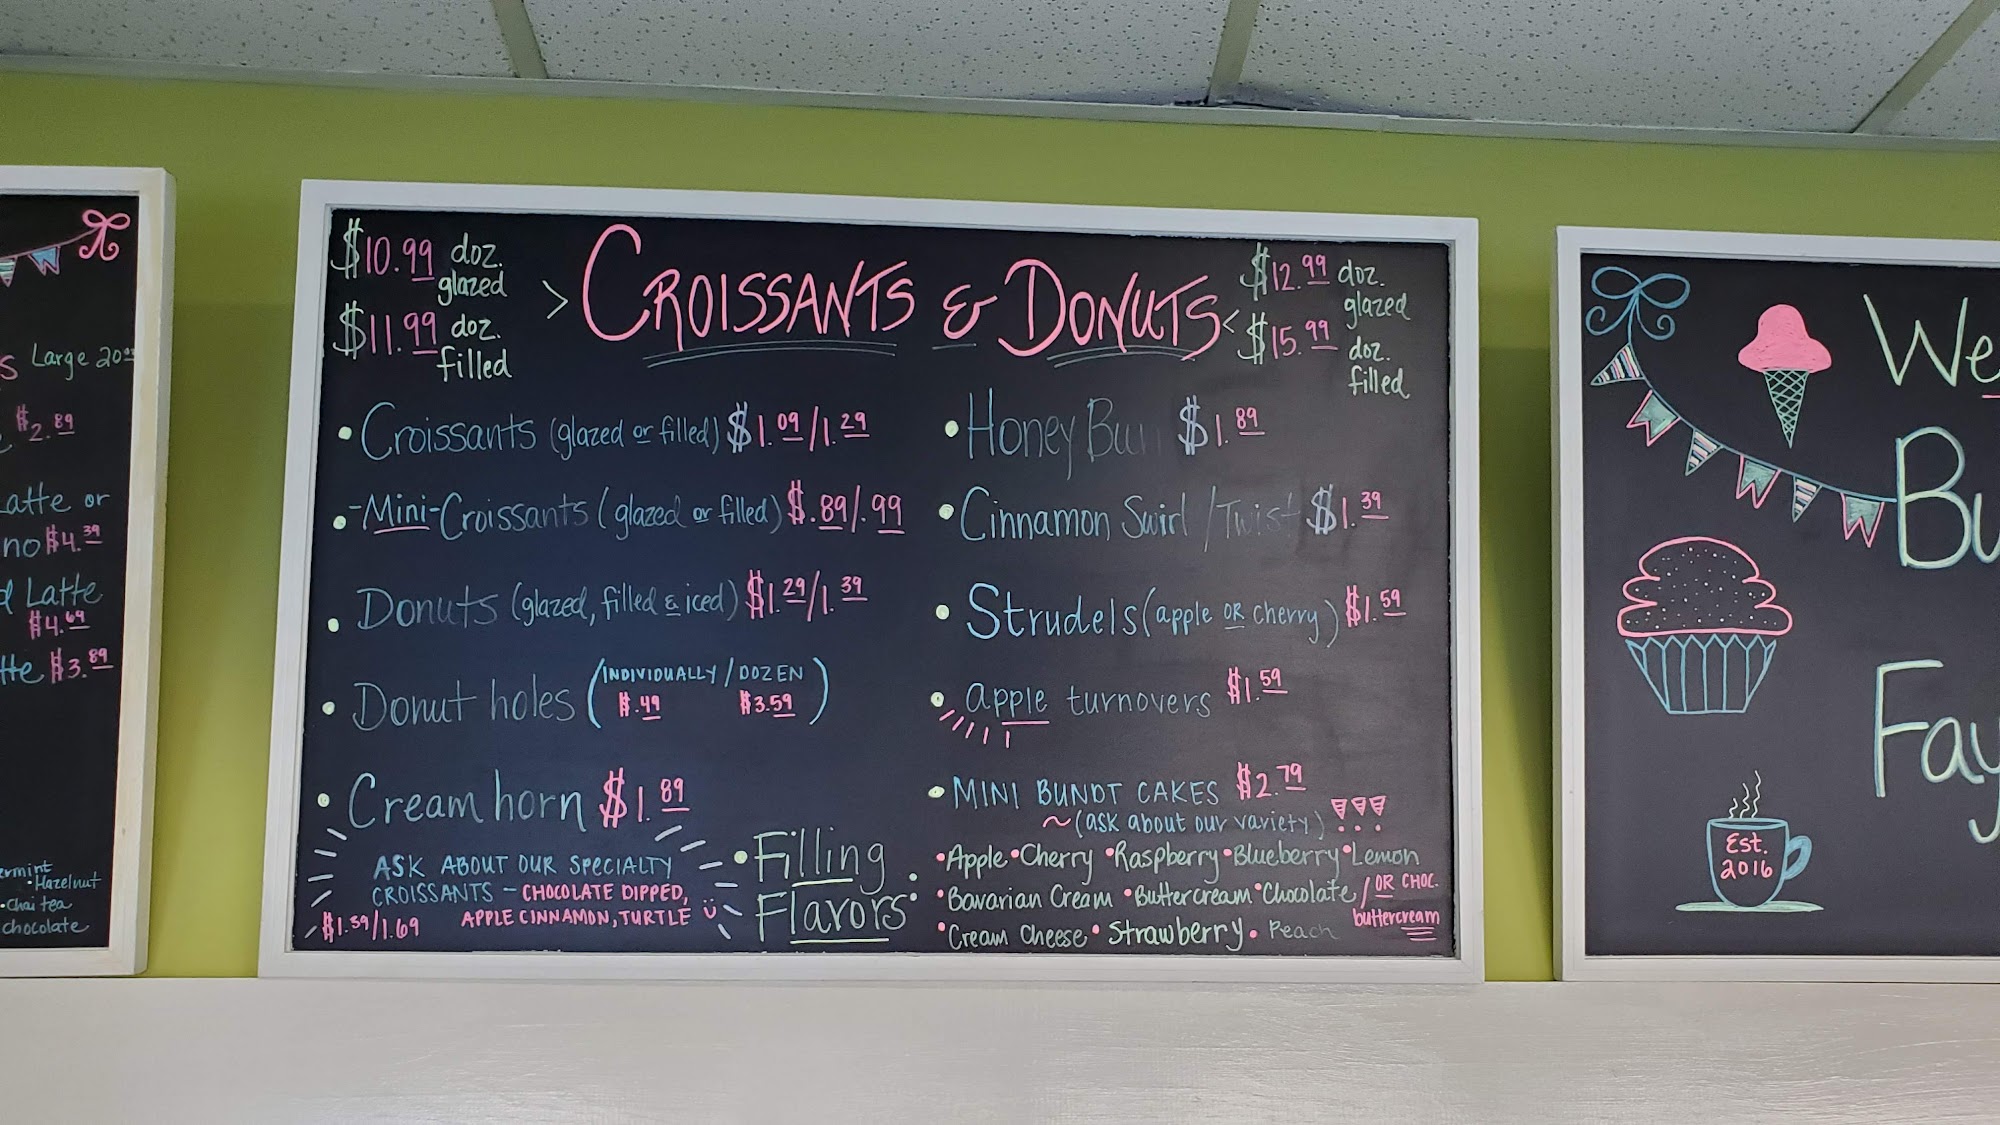 Large 20oz
$2.89
Latte or
$4.39
Latte
$4.69
$3.89
• Hazelnut
• Chai tea
chocolate
$10.99 doz.
glazed
$11.99 doz.
filled
> CROISSANTS & DONUTS <
$12.99 doz.
glazed
$15.99 doz.
filled
• Croissants (glazed or filled) $1.09/1.29
• -Mini-Croissants (glazed or filled) $.89/.99
• Donuts (glazed, filled & iced) $1.29/1.39
• Donut holes (INDIVIDUALLY / DOZEN
$.49 $3.59)
• Cream horn $1.89
ASK ABOUT OUR SPECIALTY
CROISSANTS - CHOCOLATE DIPPED,
$1.39/1.69 APPLE CINNAMON, TURTLE
• Honey Bun $1.89
• Cinnamon Swirl / Twist $1.39
• Strudels (apple OR cherry) $1.59
• apple turnovers $1.59
• MINI BUNDT CAKES $2.79
~ (ASK about our variety) !!!
• Filling
Flavors:
• Apple • Cherry • Raspberry • Blueberry • Lemon
• Bavarian Cream • Buttercream • Chocolate / OR CHOC.
buttercream
• Cream Cheese • Strawberry • Peach
We
Bu
Fay
Est.
2016